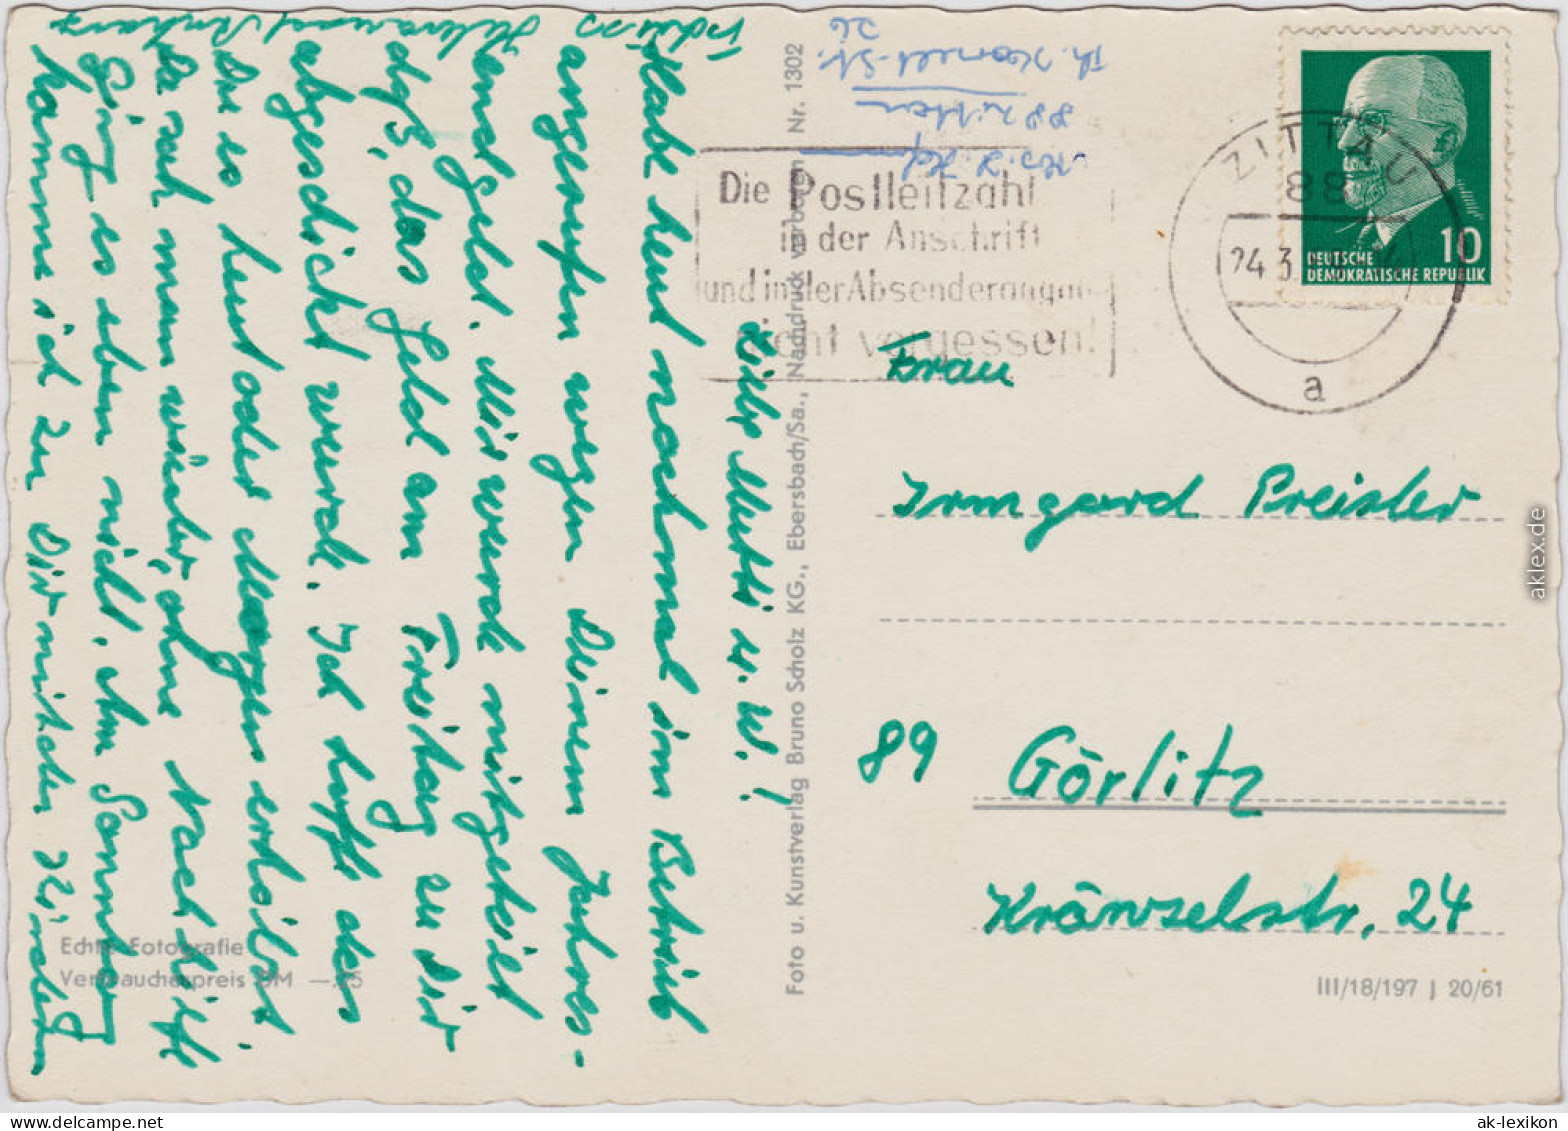 Liebe Mutti u. W.!
Habe heut nochmal im Betrieb
angerufen wegen Deinem Jahres-
endgeld. Mir wurde mitgeteilt
daß, das Geld am Freitag zu Dir
abgeschickt wurde. Ich hoffe das
Du es, heut oder Morgen erhälst.
Da sah man wieder, ohne Nachhilfe
Ging es eben nicht. Am Sonntag
komme ich zu Dir mit den Kindern
Tschüss
Th. Korselt-St.
26
88 Zittau
Die Postleitzahl
in der Anschrift
und in der Absenderangabe
nicht vergessen!
ZITTAU
88
24.3.
a
10
DEUTSCHE
DEMOKRATISCHE REPUBLIK
Frau
Irmgard Preisler
89 Görlitz
Kränzelstr. 24
Foto u. Kunstverlag Bruno Scholz KG., Ebersbach/Sa., Nachdruck verboten Nr. 1302
Echte Fotografie
Verbraucherpreis DM —.25
III/18/197 J 20/61
aklex.de
ak-lexikon